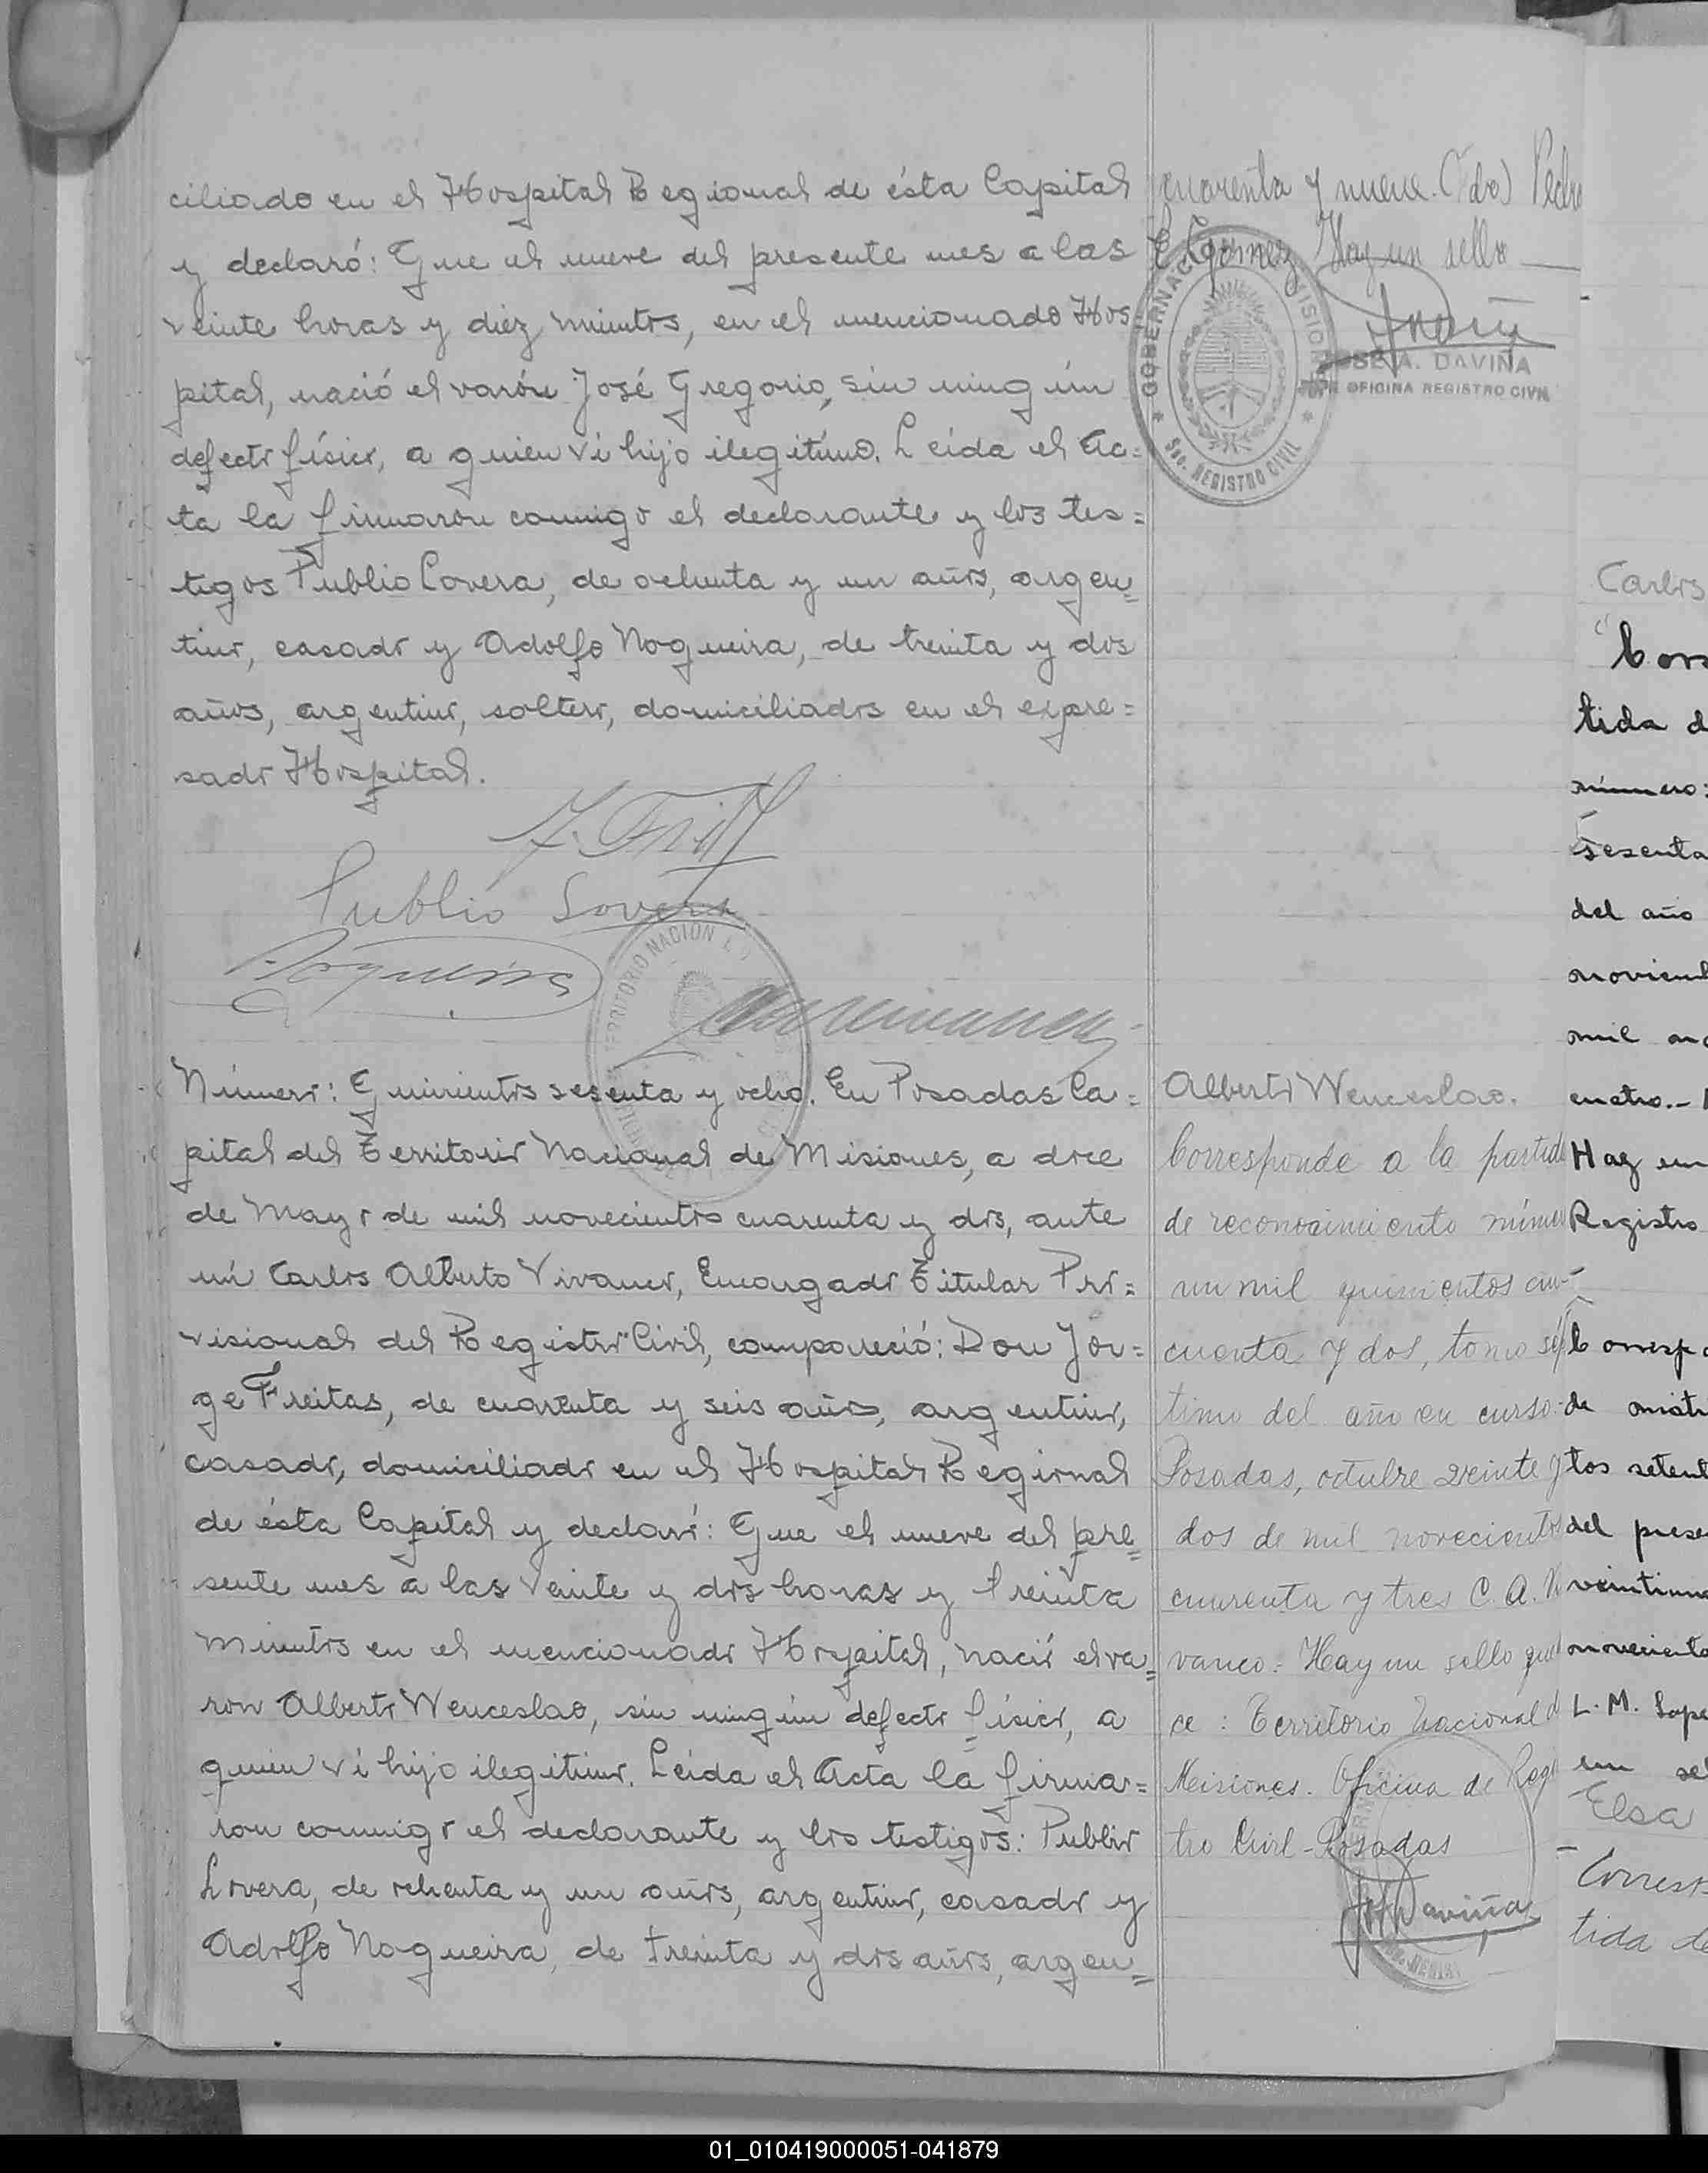 ciliado en el Hospital Regional de ésta Capital
y declaró: Que el nueve del presente mes a las
veinte horas y diez minutos, en el mencionado Hos
pital, nació el varón José Gregorio, sin ningún
defecto físico, a quien ví hijo ilegítimo. Leída el Ac=
ta la firmaron conmigo el declarante y los tes=
tigos Publio Lovera, de ochenta y un años, argen=
tino, casado y Adolfo Nogueira, de treinta y dos
años, argentino, soltero, domiciliados en el expre=
sado Hospital.
Publio Lovera
Nogueira
TERRITORIO NACION
Número: Quinientos sesenta y ocho. En Posadas Ca=
pital del Territorio Nacional de Misiones, a doce
de Mayo de mil novecientos cuarenta y dos, ante
mí Carlos Alberto Vivanco, Encargado Titular Pro=
visional del Registro Civil, compareció: Don Jor=
ge Freitas, de cuarenta y seis años, argentino,
casado, domiciliado en el Hospital Regional
de ésta Capital y declaró: Que el nueve del pre=
sente mes a las veinte y dos horas y treinta
minutos en el mencionado Hospital, nació el va=
ron Alberto Wenceslao, sin ningún defecto físico, a
quien ví hijo ilegítimo. Leída el Acta la firma=
ron conmigo el declarante y los testigos: Publio
Lovera, de ochenta y un años, argentino, casado y
Adolfo Nogueira, de treinta y dos años, argen=
cuarenta y nueve. (Fdo) Pedro
E Gomez Hay un sello
GOBERNACI MISIONES
Sec. REGISTRO CIVIL
JOSE A. DAVIÑA
JEFE OFICINA REGISTRO CIVIL
Alberto Wenceslao.
Corresponde a la partida
de reconocimiento númer
un mil quinientos cin-
cuenta y dos, tomo sép
timo del año en curso.-
Posadas, octubre veinte y
dos de mil novecientos
cuarenta y tres C. A. Vi
vanco.- Hay un sello que
ce: Territorio Nacional d
Misiones. Oficina de Regis
tro Civil - Posadas
J A Daviña
Carlos
Corr
tida d
número:
sesenta
del año
noviemb
mil no
cuatro.-
Hay un
Registro
Correspo
de matr
tos setent
del prese
veintinu
noveciento
L. M. Lope
un sel
Elsa
Corresp
tida de
01_010419000051-041879